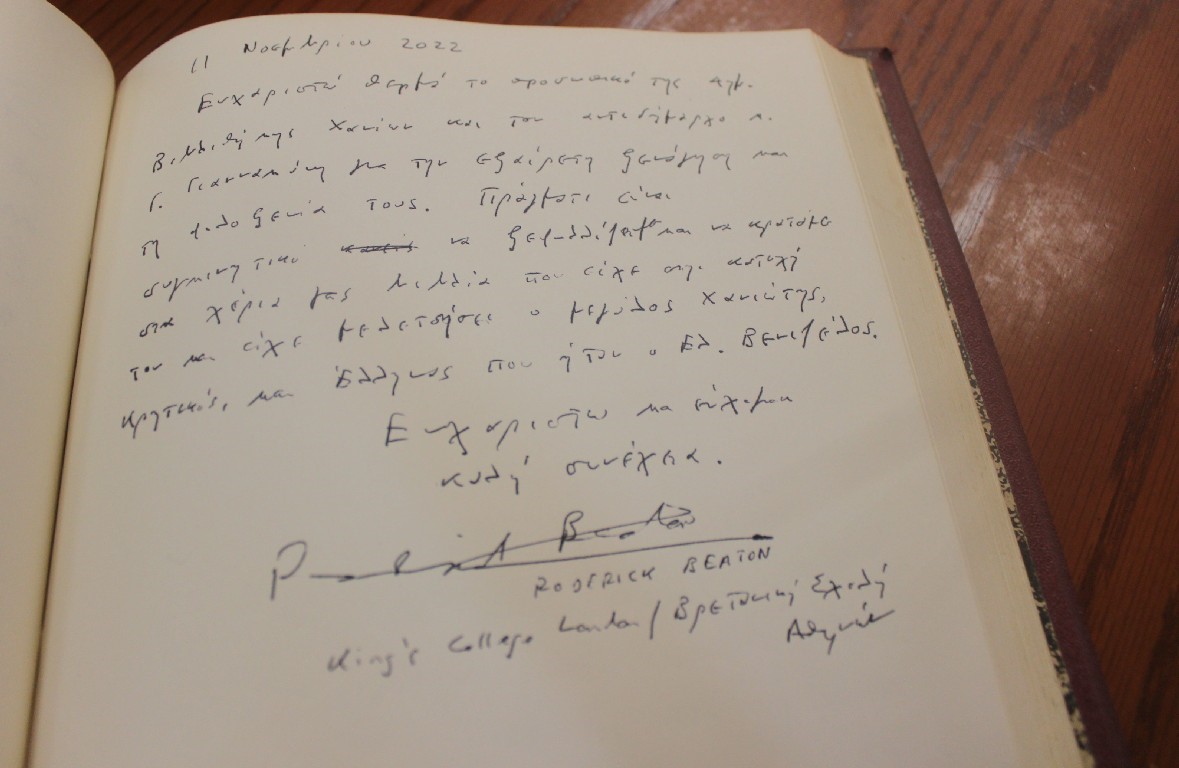 11 Νοεμβρίου 2022
Ευχαριστώ θερμά το προσωπικό της Δημ.
Βιβλιοθήκης Χανίων και τον αντιδήμαρχο κ.
Γ. Γιαννακάκη για την εξαίρετη ξενάγηση και
τη φιλοξενία τους. Πράγματι είναι
συγκινητικό να ξεφυλλίζομε και να κρατάμε
στα χέρια μας βιβλία που είχε στην κατοχή
του και είχε μελετήσει ο μεγάλος Χανιώτης,
Κρητικός, και Έλληνας που ήταν ο Ελ. Βενιζέλος.
Ευχαριστώ και εύχομαι
καλή συνέχεια.
RODERICK BEATON
King's College London / Βρετανική Σχολή
Αθηνών